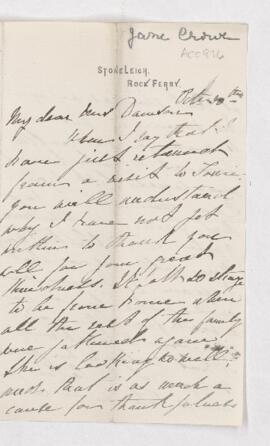 Jane Crowe
ACC 926
STONELEIGH,
ROCK FERRY.
Oct 30th
My dear Mrs Davison
When I say that I
have just returned
from a visit to
you will understand
why I have not yet
written to thank you
all for your great
kindness. It felt so strange
to be gone home when
all the rest of the family
were gathered again
She is looking so well;
and that is as much a
cause for thankfulness